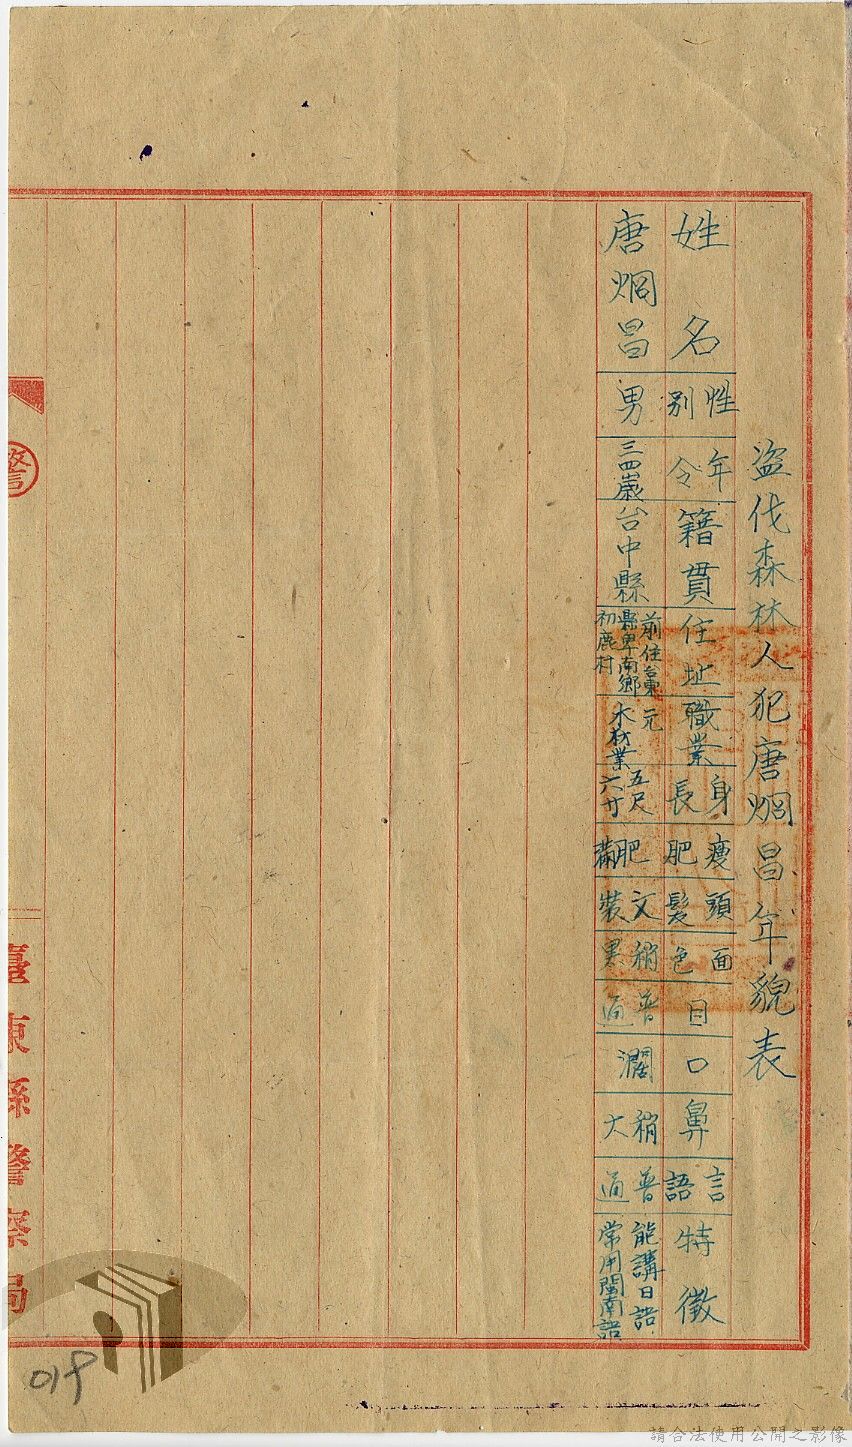 盜伐森林人犯唐烱昌年貌表
姓名
性別
年令
籍貫
住址
職業
身長
瘦肥
頭髮
面色
目
口
鼻
言語
特徵
唐烱昌
男
三四歲
台中縣
前住台東
縣卑南鄉
初鹿村
元
木材業
五尺
六寸
肥滿
文裝
稍黑
普通
濶
稍大
普通
能講日語
常用閩南語
警
臺東縣警察局
019
請合法使用公開之影像